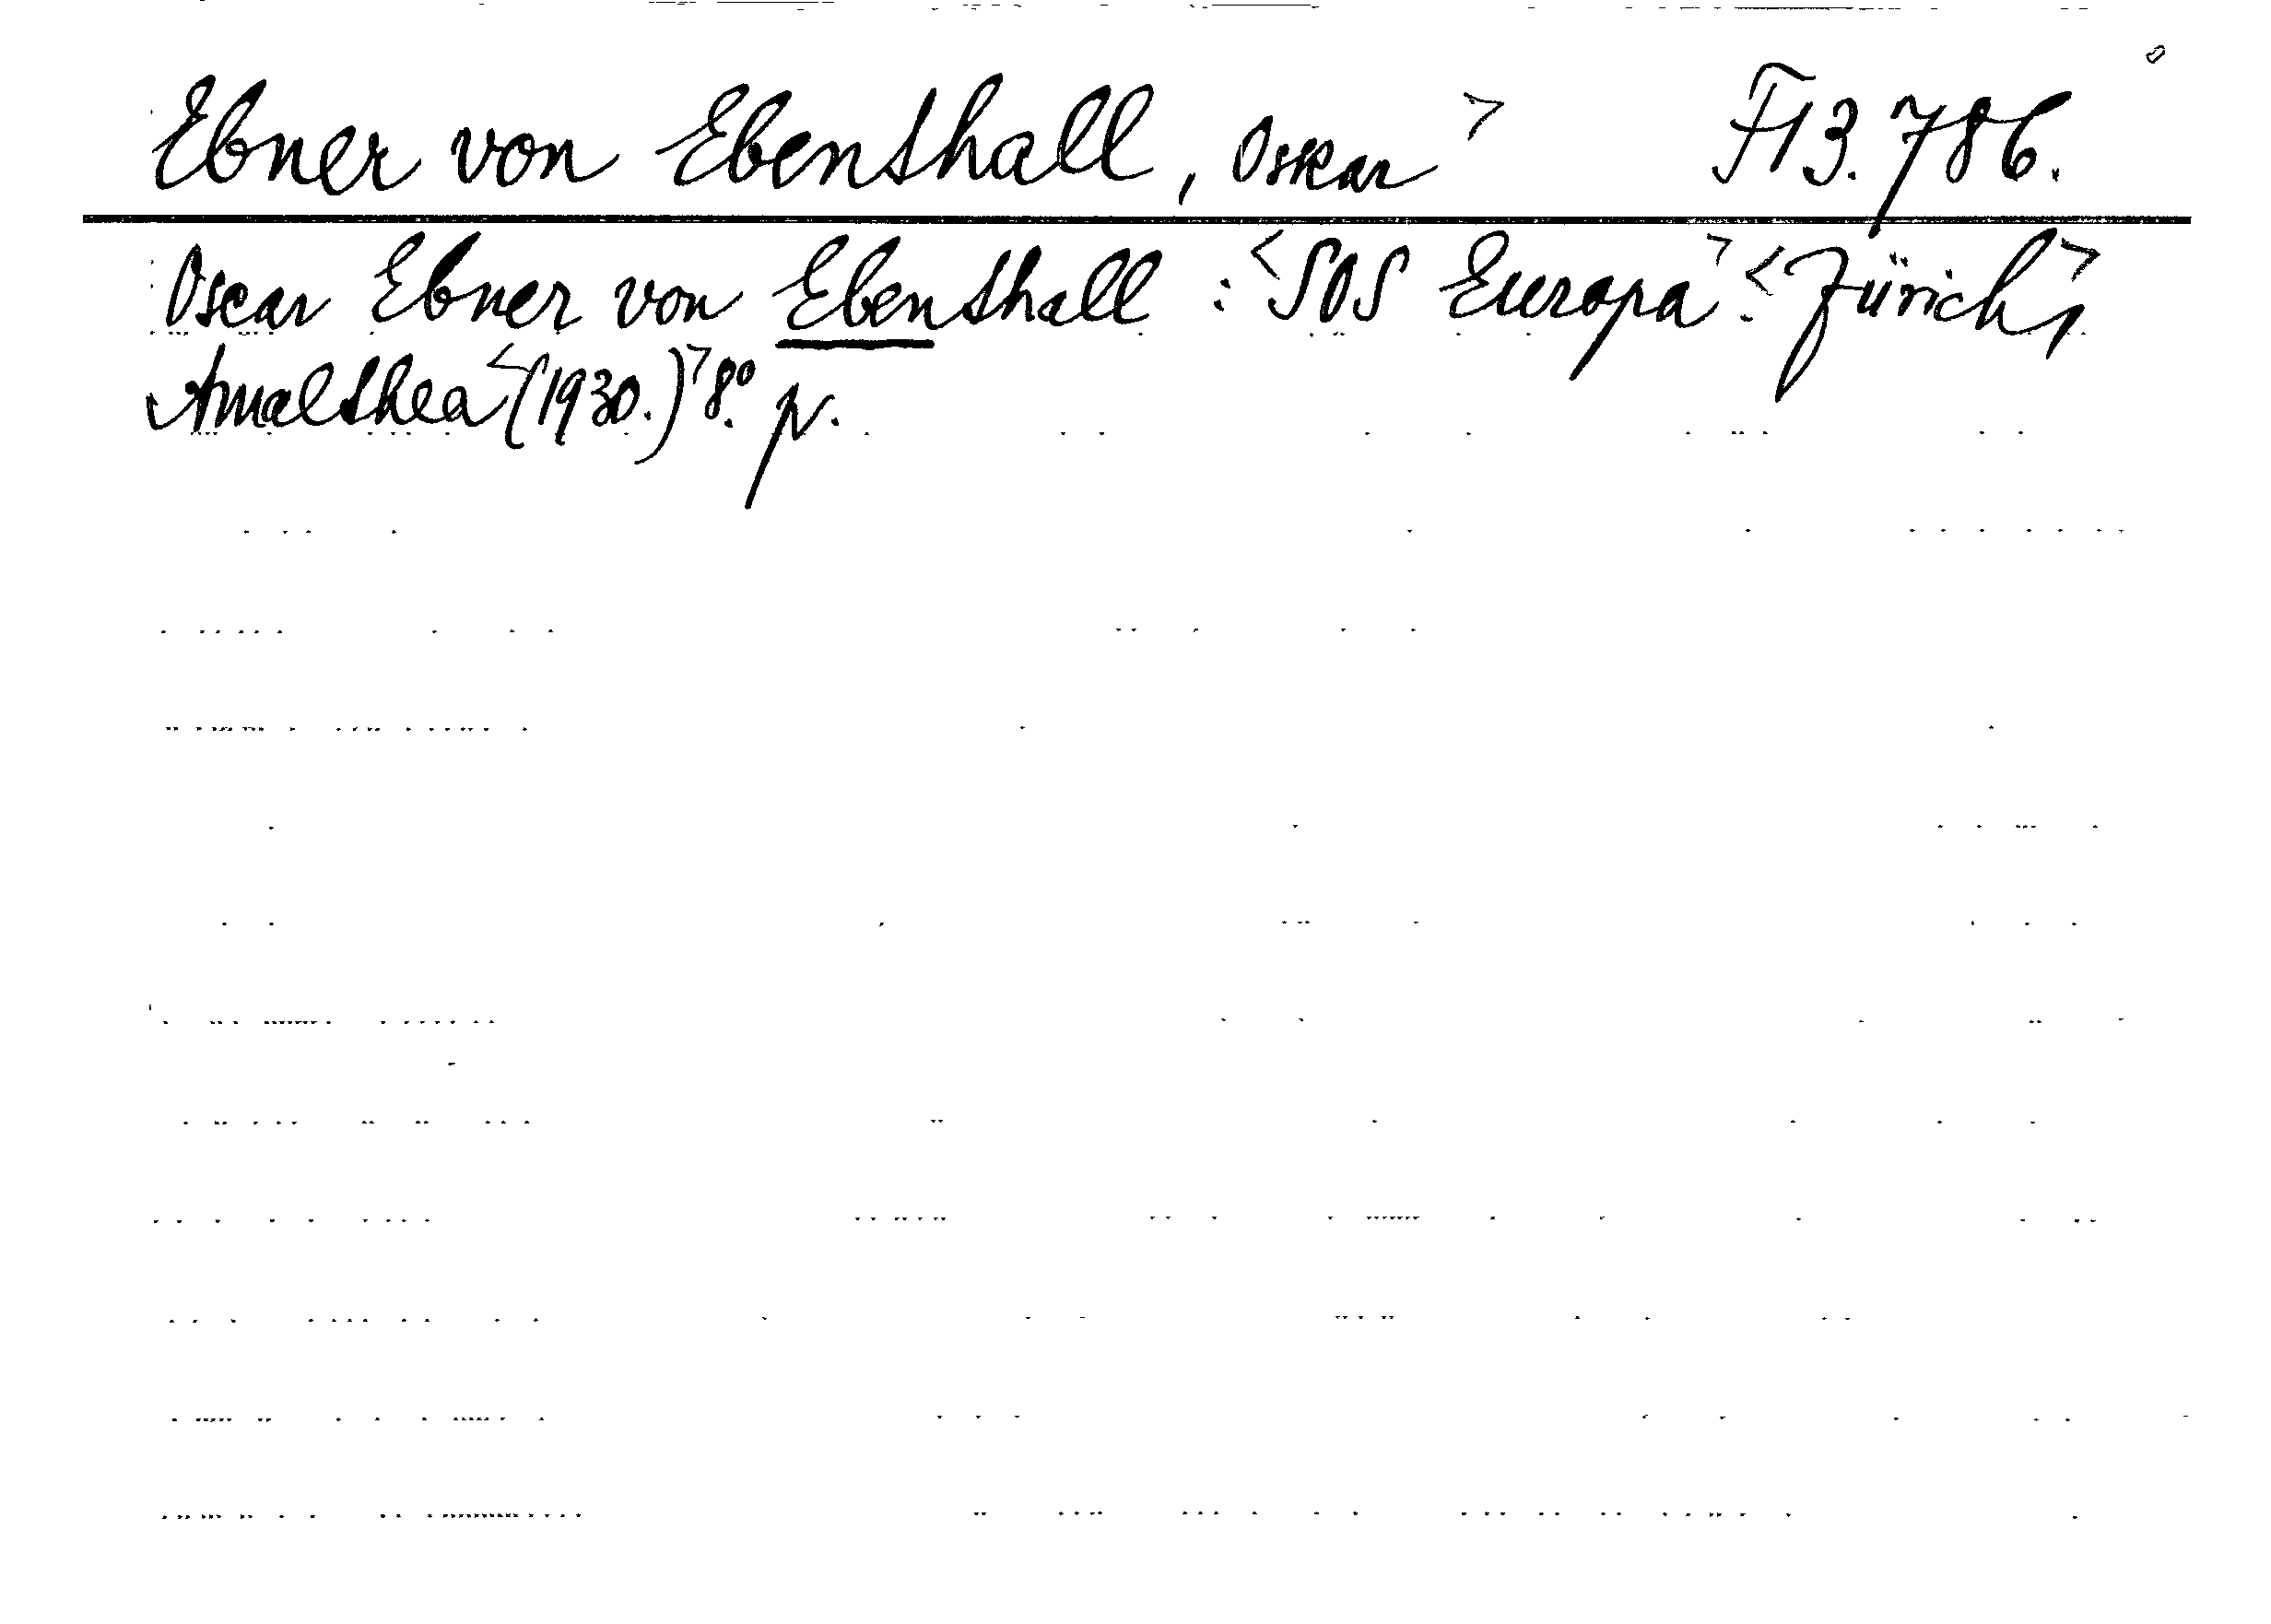 Ebner von Ebenthall, Oskar > F13.786.
Oscar Ebner von Ebenthall : <SOS Europa>. <Zürich>,
Amalthea <(1930.)> 8.º p.